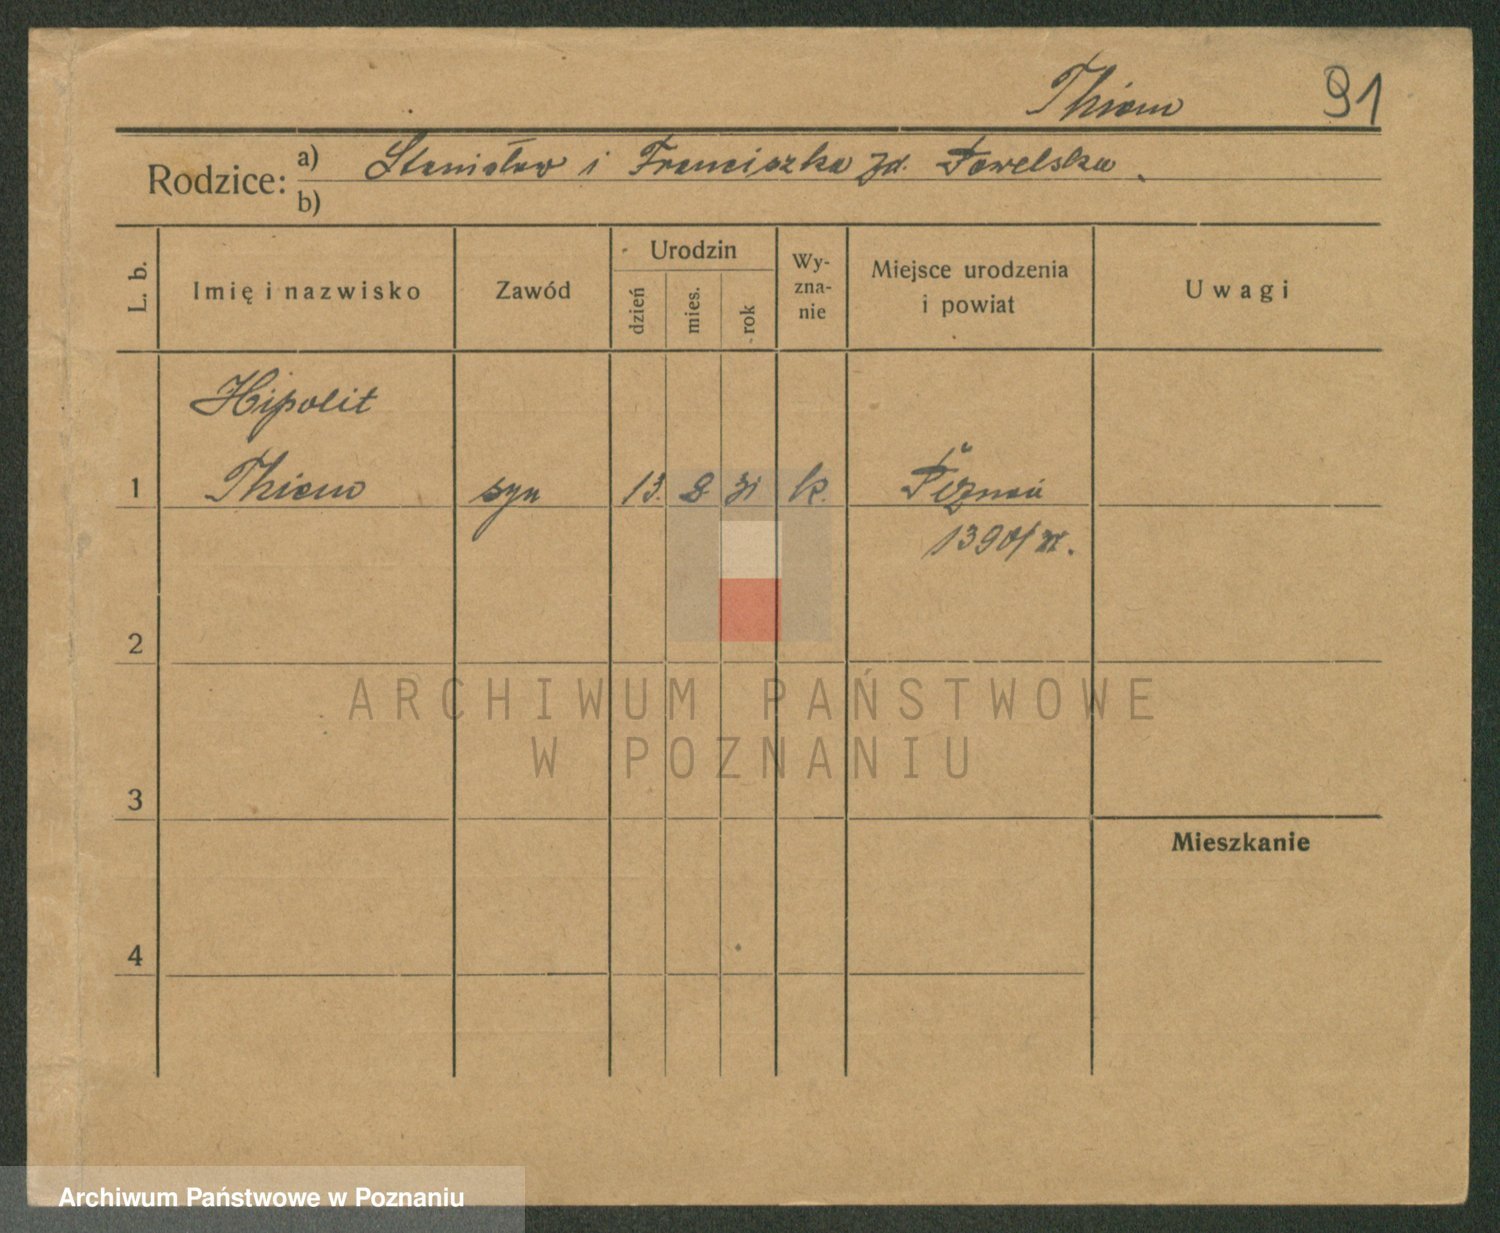 Thiem 91
Rodzice: a) Stanisław i Franciszka zd. Pawelska.
b)
L. b. Imię i nazwisko Zawód Urodzin dzień mies. rok Wyznanie Miejsce urodzenia i powiat Uwagi
Hipolit
1 Thiem syn 13. 8. 31 k. Poznań
1390/31.
2
ARCHIWUM PAŃSTWOWE
W POZNANIU
3
Mieszkanie
4
Archiwum Państwowe w Poznaniu